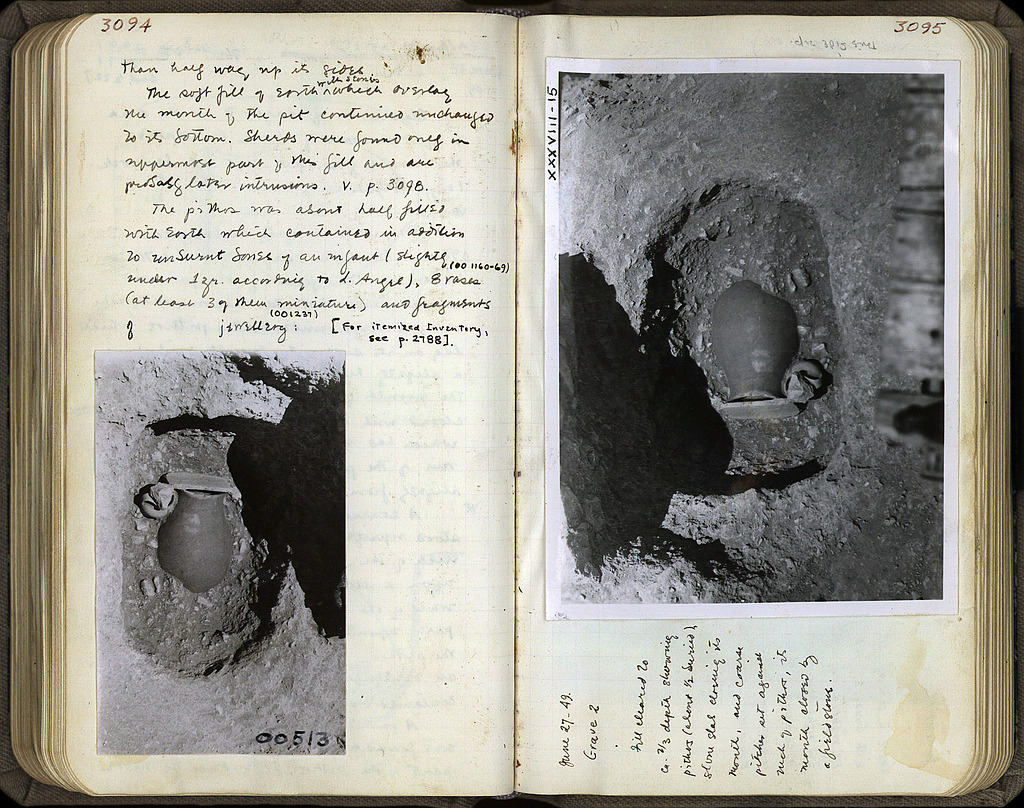 3094
than half way up its sides
with stones
The soft fill of earth which overlay
the mouth of the pit continued unchanged
to its bottom. Sherds were found only in
uppermost part of this fill and are
probably later intrusions. V. p. 3098.
The pithos was about half filled
with earth which contained in addition
to unburnt bones of an infant (slightly
(OO 1160-69)
under 1 yr. according to L. Angel), 8 vases
(at least 3 of them miniature) and fragments
(OO1237)
of jewellery: [For itemized Inventory,
see p. 2788].
00513
3095
This side up.
XXXVIII-15
June 27-49.
Grave 2
Fill cleared to
ca. 2/3 depth showing
pithos (about 1/2 buried)
stone slab closing its
mouth, and coarse
pitcher set against
neck of pithos, its
mouth closed by
a fieldstone.